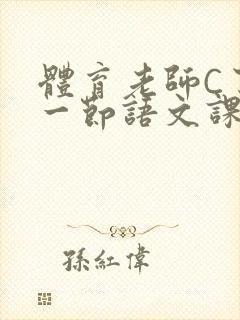 體育老師C
一節語文課
孫紅偉